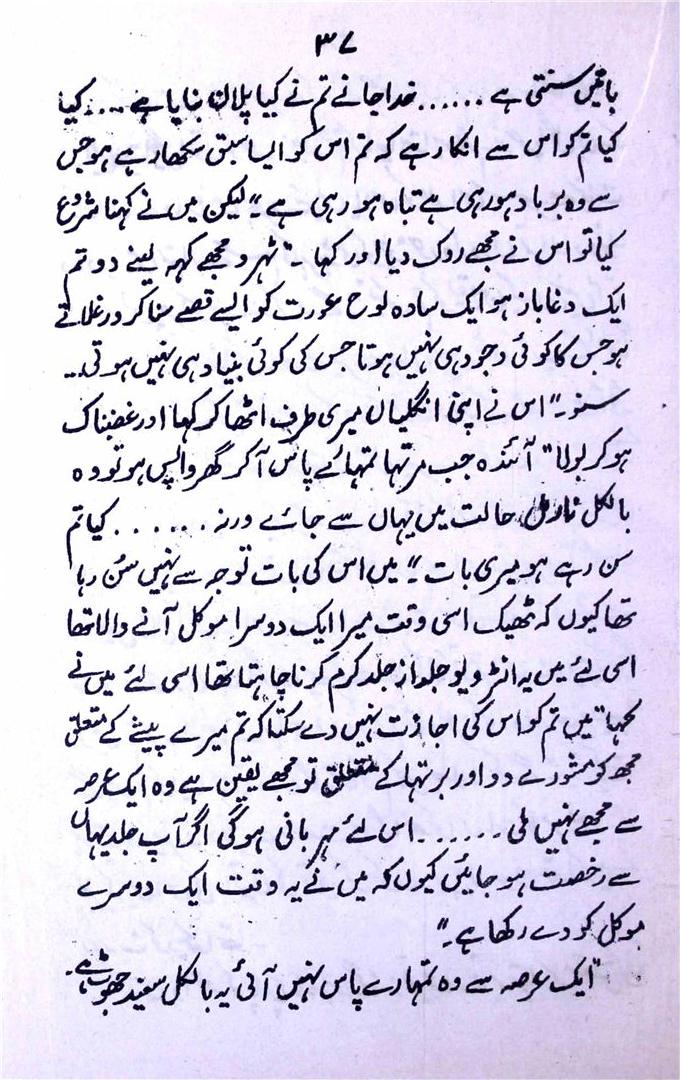 ۳۷
باتیں سنتی ہے ...... خدا جانے تم نے کیا پلان بنایا ہے .... کیا
کیا تم کو اس سے انکار ہے کہ تم اس کو ایسا سبق سکھا رہے ہو جس
سے وہ برباد ہو رہی ہے تباہ ہو رہی ہے ۔" لیکن میں نے کہنا شروع
کیا تو اس نے مجھے روک دیا اور کہا ۔" ٹہرو مجھے کہہ لینے دو تم
ایک دغا باز ہو ایک سادہ لوح عورت کو ایسے قصے سنا کر ورغلاتے
ہو جس کا کوئی وجود ہی نہیں ہوتا جس کی کوئی بنیاد ہی نہیں ہوتی ۔۔
سنو ۔" اس نے اپنی انگلیاں میری طرف اٹھا کر کہا اور غضبناک
ہو کر بولا " آئندہ جب مرتہا تمہارے پاس آ کر گھر واپس ہو تو وہ
بالکل نارمل حالت میں یہاں سے جائے ورنہ ...... کیا تم
سن رہے ہو میری بات ۔" میں اس کی بات توجہ سے نہیں سُن رہا
تھا کیوں کہ ٹھیک اسی وقت میرا ایک دوسرا موکل آنے والا تھا
اسی لئے میں یہ انٹرویو جلد از جلد کرم کرنا چاہتا تھا اسی لئے میں نے
کہا " میں تم کو اس کی اجازت نہیں دے سکتا کہ تم میرے پیشے کے متعلق
مجھ کو مشورے دو اور برتہا کے متعلق تو مجھے یقین ہے وہ ایک عرصہ
سے مجھے نہیں ملی ...... اس لئے مہربانی ہو گی اگر آپ جلد یہاں
سے رخصت ہو جائیں کیوں کہ میں نے یہ وقت ایک دوسرے
موکل کو دے رکھا ہے ۔"
"ایک عرصہ سے وہ تمہارے پاس نہیں آئی یہ بالکل سفید جھوٹ ہے ۔